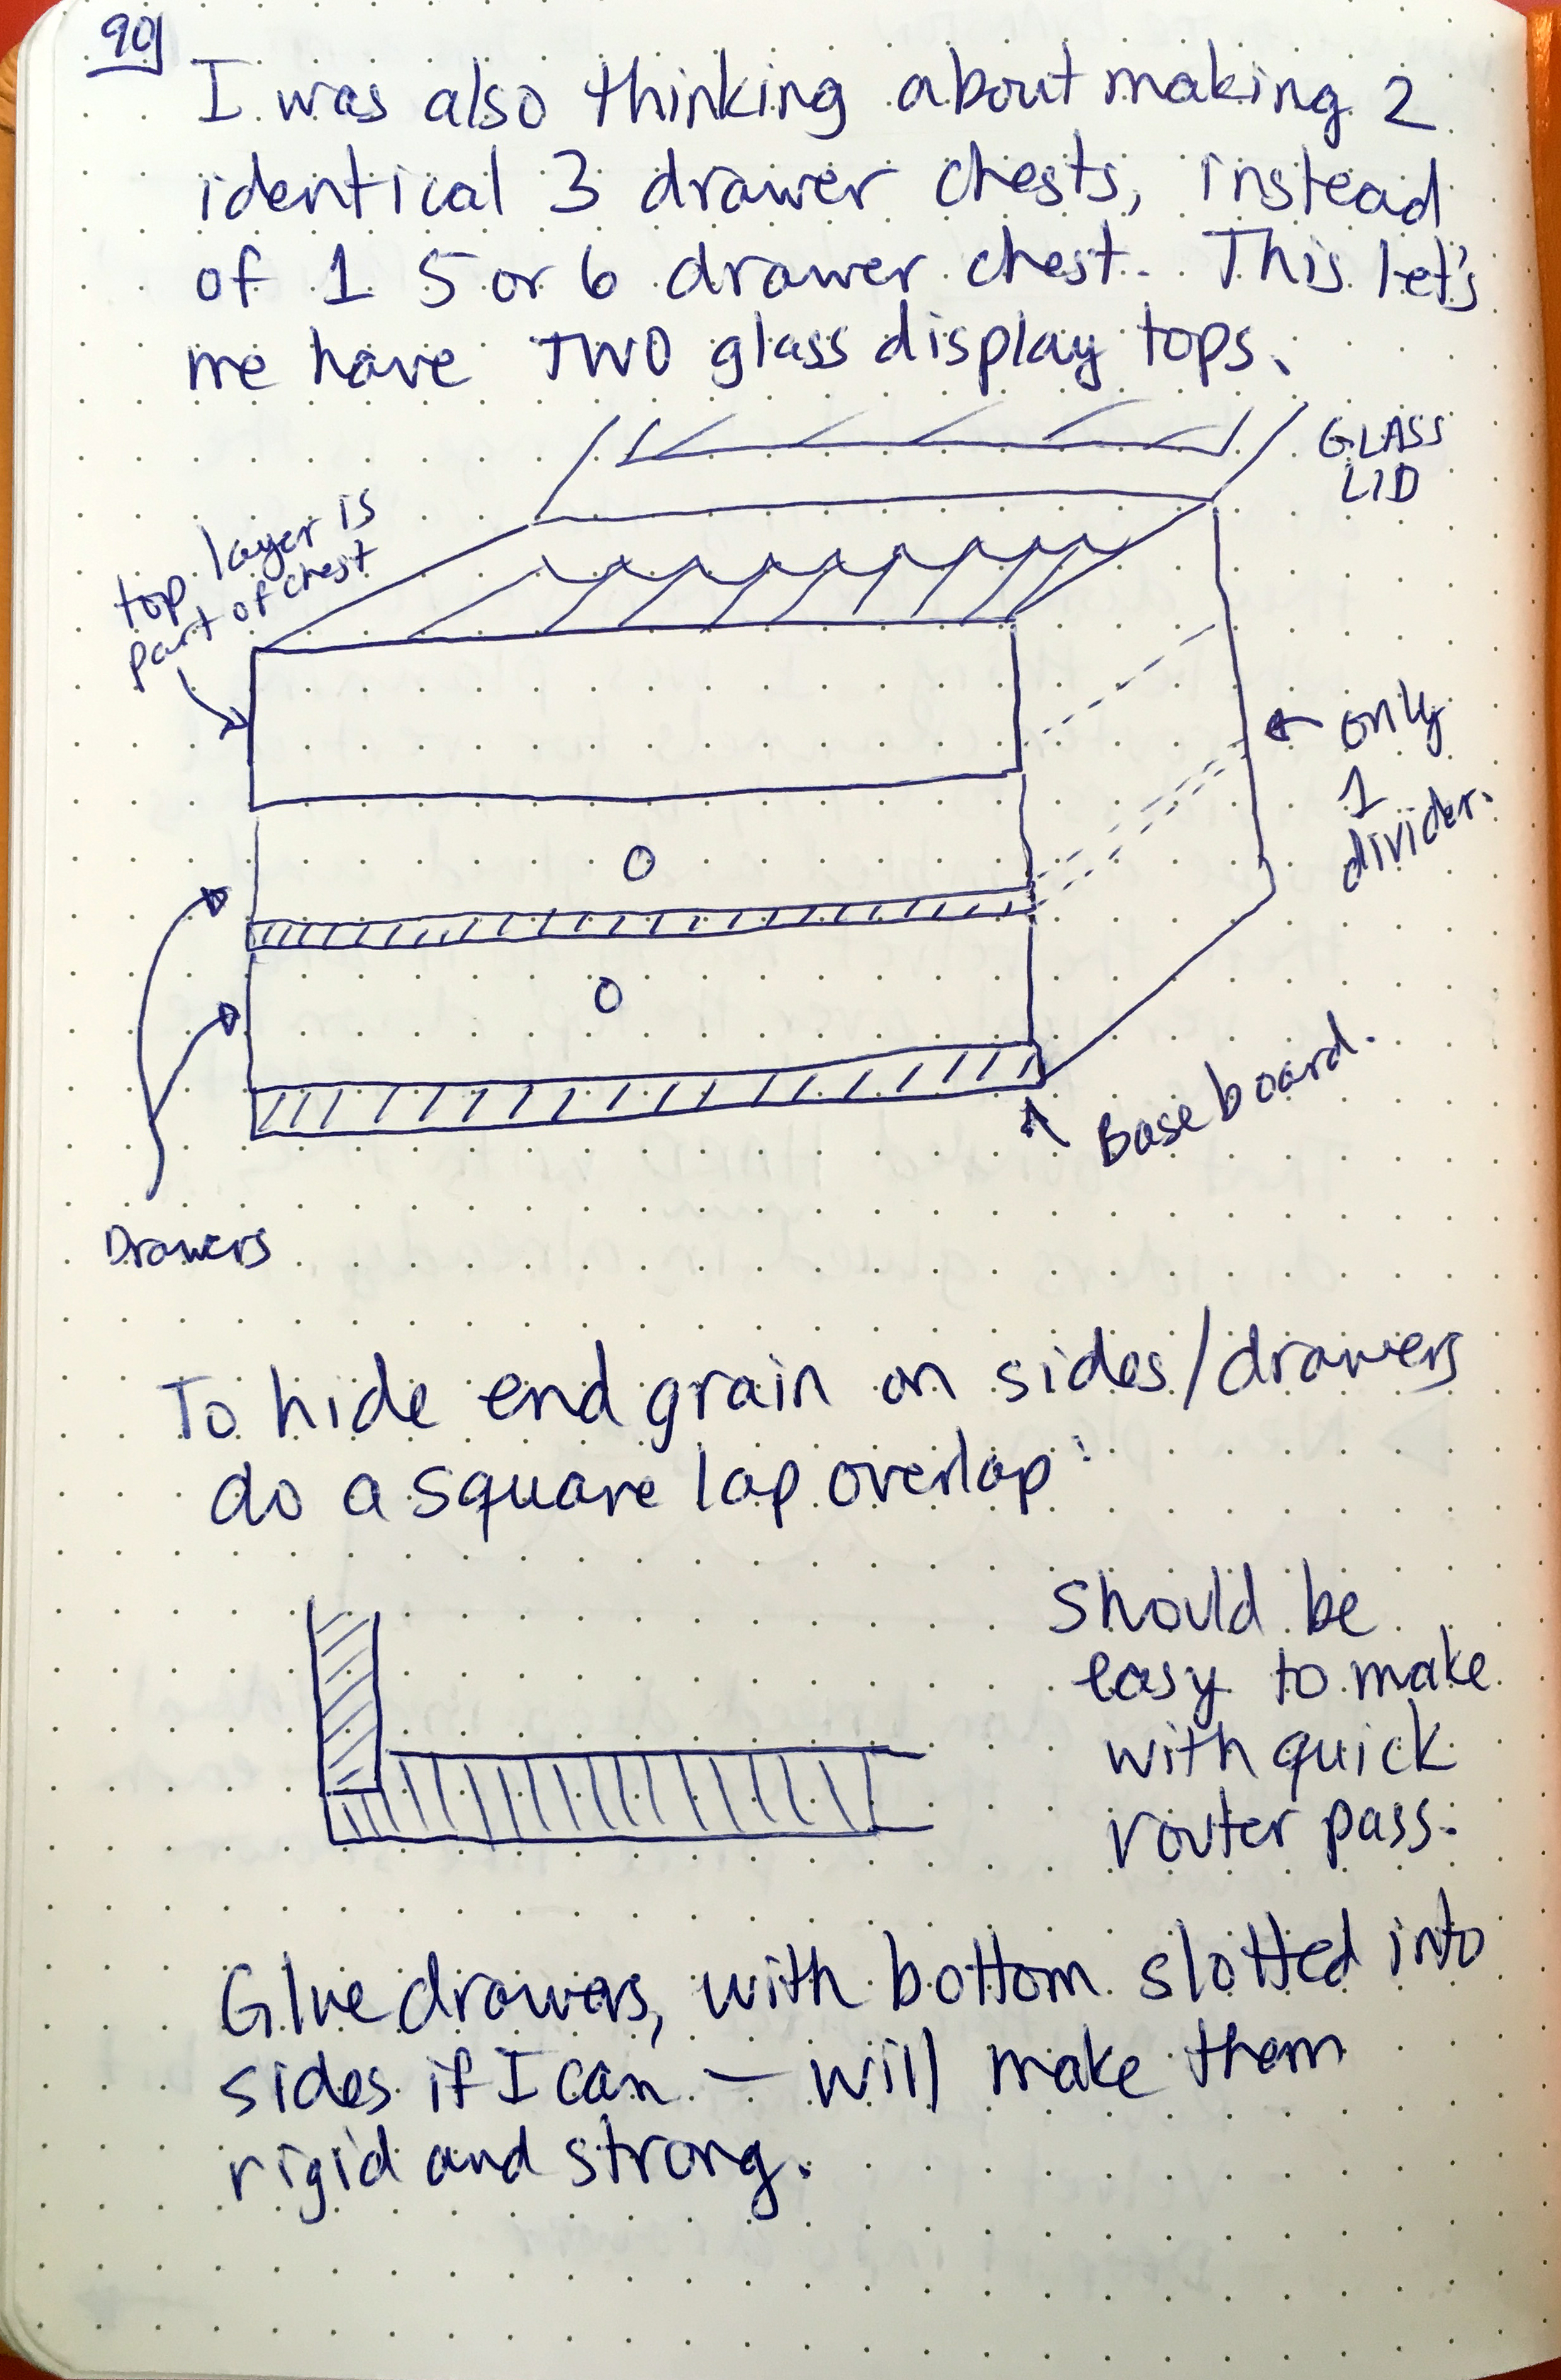 90
I was also thinking about making 2
identical 3 drawer chests, instead
of 1 5 or 6 drawer chest. This let's
me have TWO glass display tops.
GLASS
LID
top layer is
part of chest
only
1
divider.
Base board.
Drawers
To hide end grain on sides/drawers
do a square lap overlap:
Should be
easy to make
with quick
router pass.
Glue drawers, with bottom slotted into
sides if I can — will make them
rigid and strong.